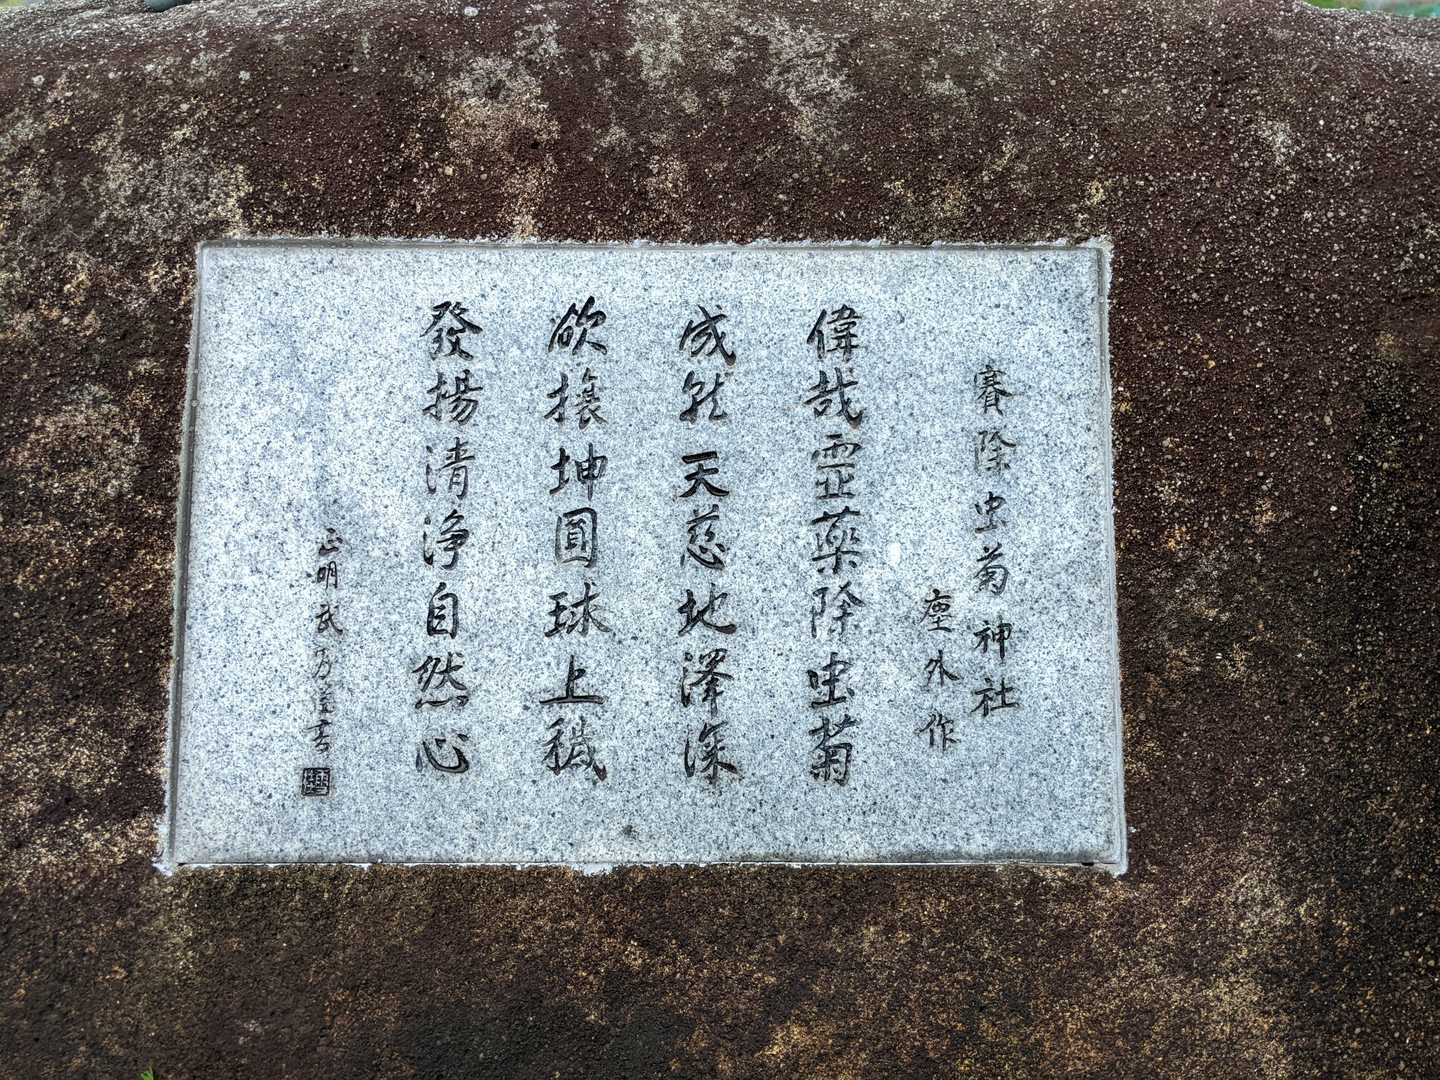 賽除虫菊神社
塵外作
偉哉霊薬除虫菊
成然天慈地澤深
欲攘坤圓球上穢
發揚清浄自然心
正明武 書